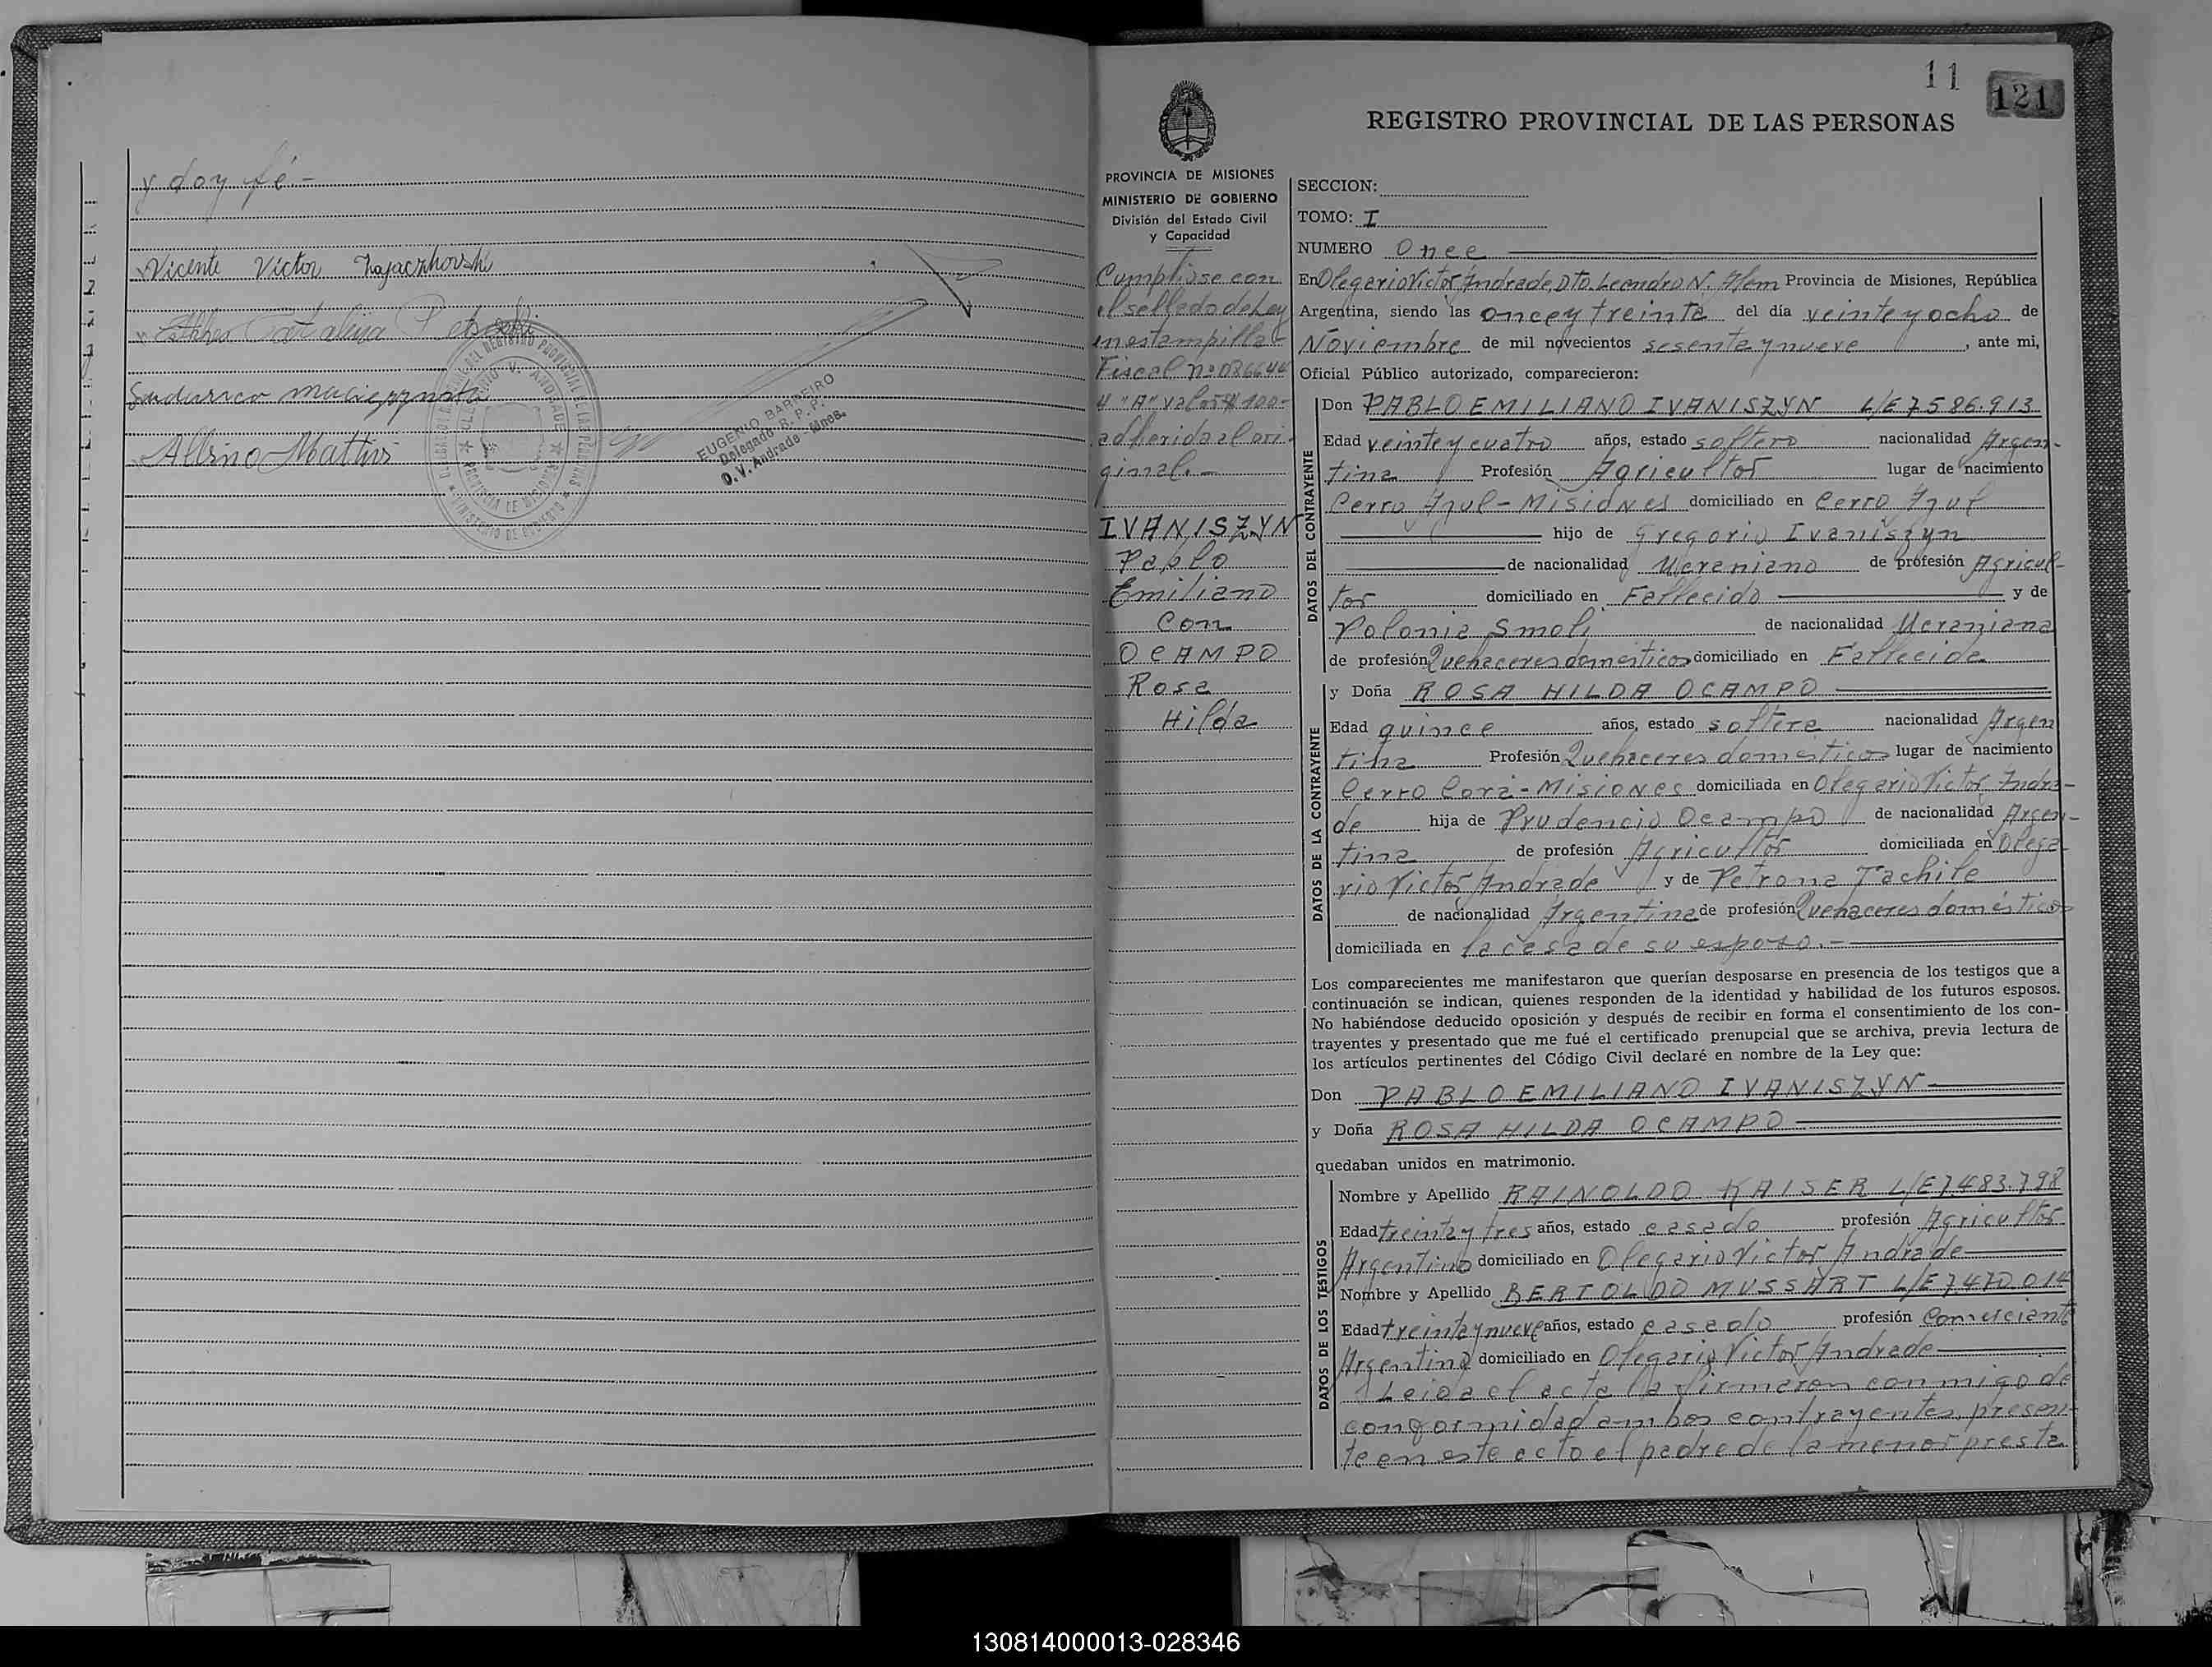 y doy fé -
Vicente Victor Zajaczkovski
Catalina
Albino Mattivi
EUGENIO BARBEIRO
Delegado R. P. P.
O. V. Andrade - Mnes.
11
121
REGISTRO PROVINCIAL DE LAS PERSONAS
PROVINCIA DE MISIONES
MINISTERIO DE GOBIERNO
División del Estado Civil
y Capacidad
Cumplióse con
el sellado de Ley
en estampilla
Fiscal nº 086644
"A" valor $ 100-
adherida al ori-
ginal.-
IVANISZYN
Pablo
Emiliano
Con
OCAMPO
Rosa
Hilda
SECCION:
TOMO: I
NUMERO Once
En Olegario Victor Andrade, Dto. Leandro N. Alem Provincia de Misiones, República
Argentina, siendo las once y treinta del día veinte y ocho de
Noviembre de mil novecientos sesenta y nueve, ante mi,
Oficial Público autorizado, comparecieron:
DATOS DEL CONTRAYENTE
Don PABLO EMILIANO IVANISZYN L/E 7586.913
Edad veinte y cuatro años, estado soltero nacionalidad Argen-
tina Profesión Agricultor lugar de nacimiento
Cerro Azul - Misiones domiciliado en Cerro Azul
hijo de Gregorio Ivaniszyn
de nacionalidad Ucraniano de profesión Agricul-
tor domiciliado en Fallecido y de
Polonia Smoli de nacionalidad Ucraniana
de profesión Quehaceres domésticos domiciliado en Fallecida
DATOS DE LA CONTRAYENTE
y Doña ROSA HILDA OCAMPO
Edad quince años, estado soltera nacionalidad Argen
tina Profesión Quehaceres domesticos lugar de nacimiento
Cerro Corá - Misiones domiciliada en Olegario Victor Andra-
de hija de Prudencio Ocampo de nacionalidad Argen-
tina de profesión Agricultor domiciliada en Olega
rio Victor Andrade y de Petrona Tachile
de nacionalidad Argentina de profesión Quehaceres domésticos
domiciliada en la casa de su esposo.-
Los comparecientes me manifestaron que querían desposarse en presencia de los testigos que a
continuación se indican, quienes responden de la identidad y habilidad de los futuros esposos.
No habiéndose deducido oposición y después de recibir en forma el consentimiento de los con-
trayentes y presentado que me fué el certificado prenupcial que se archiva, previa lectura de
los artículos pertinentes del Código Civil declaré en nombre de la Ley que:
Don PABLO EMILIANO IVANISZYN
y Doña ROSA HILDA OCAMPO
quedaban unidos en matrimonio.
DATOS DE LOS TESTIGOS
Nombre y Apellido RAINOLDO KAISER L/E 7483.798
Edad treinta y tres años, estado casado profesión Agricultor
Argentino domiciliado en Olegario Victor Andrade
Nombre y Apellido BERTOLDO MUSSART L/E 7470.014
Edad treinta y nueve años, estado casado profesión Comerciante
Argentino domiciliado en Olegario Victor Andrade
Leida el acta la firmaron conmigo de
conformidad ambos contrayentes, presen-
te en este acto el padre de la menor presta
130814000013-028346